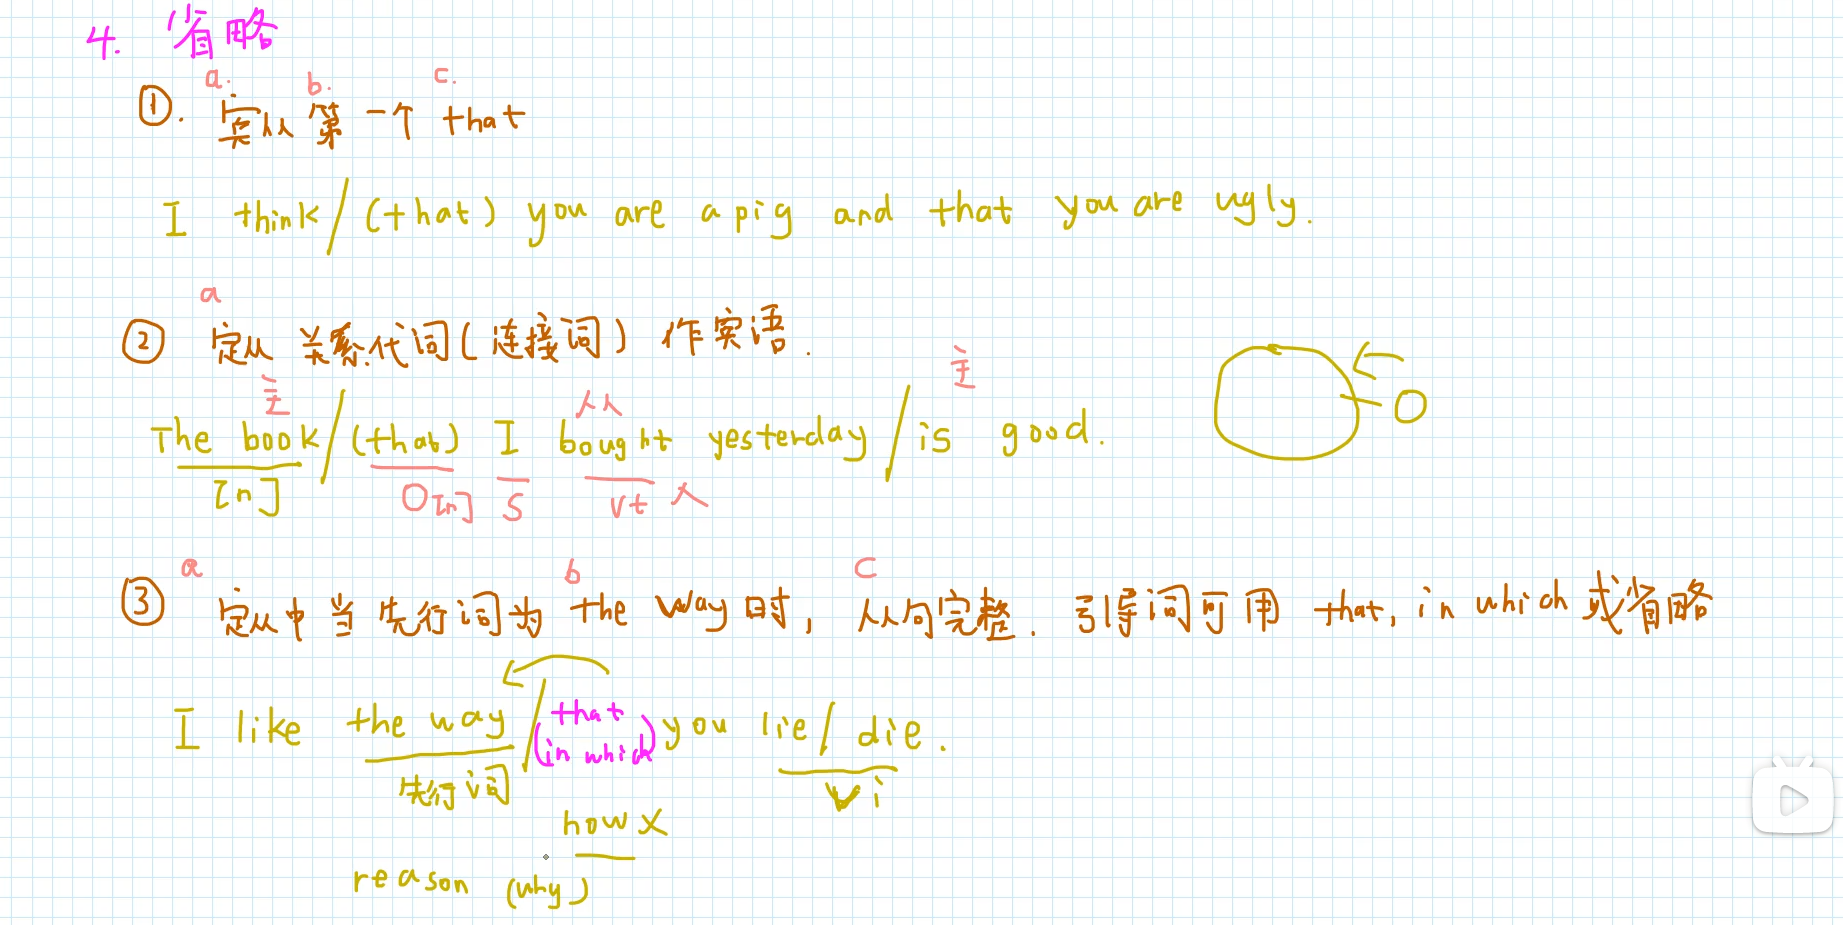 4. 省略
a. b. c.
①. 宾从 第一个 that
I think / (that) you are a pig and that you are ugly.
a
② 定从 关系代词(连接词) 作宾语.
主 从 主
The book / (that) I bought yesterday / is good.
[n] O[n] S vt ㄨ
a b c
③ 定从中当先行词为 the way 时, 从句完整. 引导词可用 that, in which 或省略
I like the way / (that in which) you lie / die.
先行词 vi
how ×
reason (why)